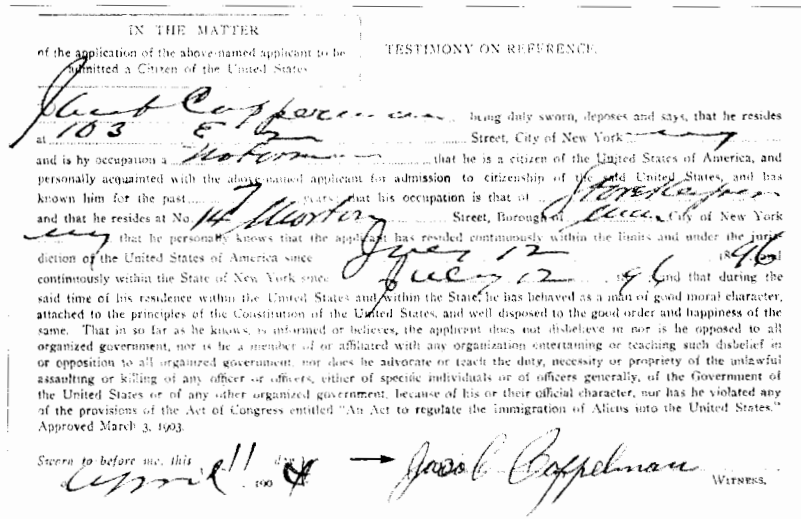 IN THE MATTER
of the application of the above-named applicant to be
admitted a Citizen of the United States
TESTIMONY ON REFERENCE.
Jacob Copperman being duly sworn, deposes and says, that he resides
at 103 E Street, City of New York
and is by occupation a that he is a citizen of the United States of America, and
personally acquainted with the above-named applicant for admission to citizenship of the said United States, and has
known him for the past 7 years, that his occupation is that of Storekeeper
and that he resides at No. 14 Morton Street, Borough of City of New York
that he personally knows that the applicant has resided continuously within the limits and under the juris-
diction of the United States of America since July 12 1896 and
continuously within the State of New York since July 12 1896 and that during the
said time of his residence within the United States and within the State, he has behaved as a man of good moral character,
attached to the principles of the Constitution of the United States, and well disposed to the good order and happiness of the
same. That in so far as he knows, is informed or believes, the applicant does not disbelieve in nor is he opposed to all
organized government, nor is he a member of or affiliated with any organization entertaining or teaching such disbelief in
or opposition to all organized government, nor does he advocate or teach the duty, necessity or propriety of the unlawful
assaulting or killing of any officer or officers, either of specific individuals or of officers generally, of the Government of
the United States or of any other organized government, because of his or their official character, nor has he violated any
of the provisions of the Act of Congress entitled "An Act to regulate the immigration of Aliens into the United States."
Approved March 3, 1903.
Sworn to before me, this 11 day
of April 1904 Jacob Coppelman WITNESS.